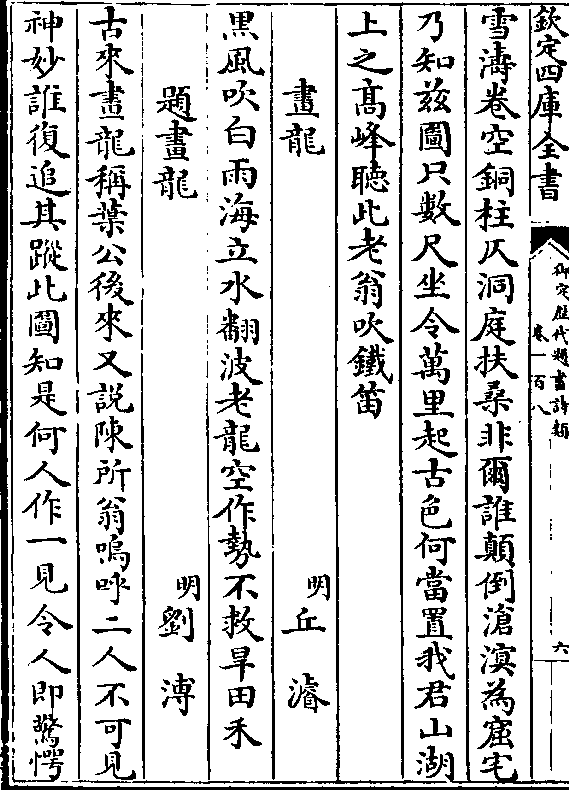 欽定四庫全書
御定歷代題畫詩類
卷一百八
六
雪濤卷空銅柱仄洞庭扶桑非爾誰顛倒滄溟為窟宅
乃知兹圖只數尺坐令萬里起古色何當置我君山湖
上之高峰聽此老翁吹鐵笛
畫龍
明丘濬
黒風吹白雨海立水翻波老龍空作勢不救旱田禾
題畫龍
明劉溥
古來畫龍稱葉公後來又説陳所翁嗚呼二人不可見
神妙誰復追其蹤此圖知是何人作一見令人即驚愕